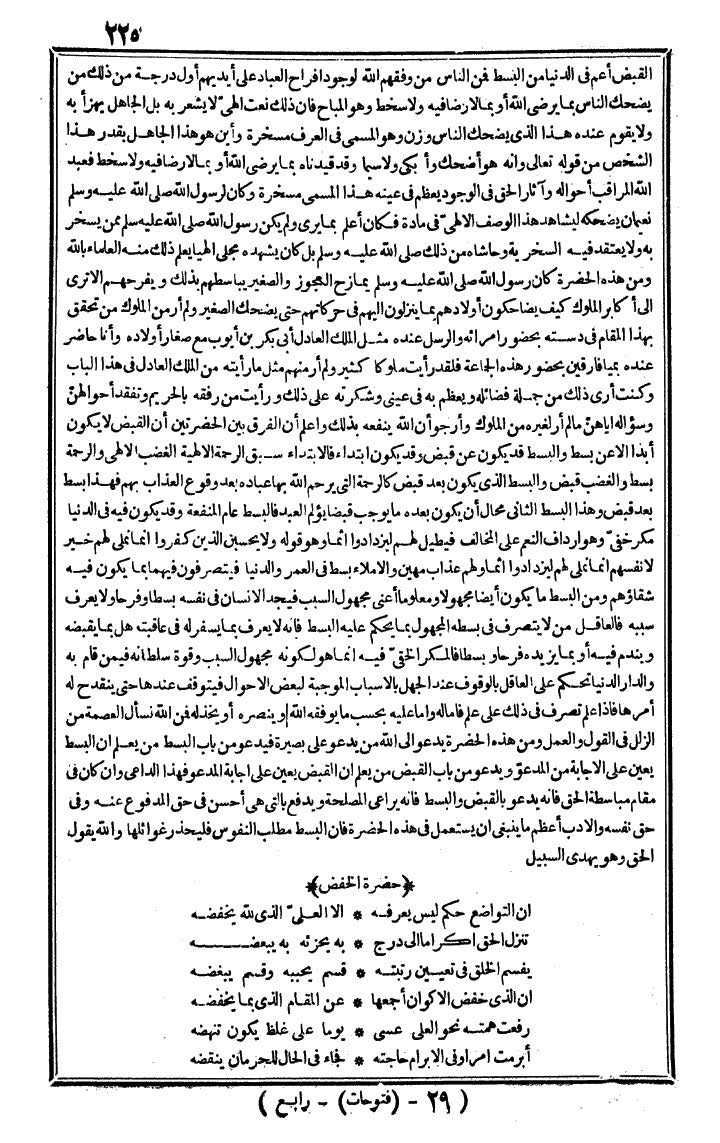 ٢٢٥
القبض أعم فى الدنيا من البسط فمن الناس من وفقهم الله لوجود افراح العباد على أيديهم أول درجة من ذلك من
يضحك الناس بما يرضى الله أو بما لا رضا فيه ولا سخط وهو المباح فان ذلك نعت الهى لا يشعر به بل الجاهل يهزأ به
ولا يقوم عنده هذا الذى يضحك الناس وزن وهو المسمى فى العرف مسخرة وأين هو هذا الجاهل بقدر هذا
الشخص من قوله تعالى وانه هو أضحك وأبكى ولا سيما وقد قيدناه بما يرضى الله أو بما لا رضا فيه ولا سخط فعبد
الله المراقب أحواله وآثار الحق فى الوجود يعظم فى عينه هذا المسمى مسخرة وكان لرسول الله صلى الله عليه وسلم
نعمان يضحكه ليشاهد هذا الوصف الالهى فى مادة فكان أعلم بما يرى ولم يكن رسول الله صلى الله عليه سلم ممن يسخر
به ولا يعتقد فيه السخرية وحاشاه من ذلك صلى الله عليه وسلم بل كان يشهده مجلى الهيا يعلم ذلك منه العلماء بالله
ومن هذه الحضرة كان رسول الله صلى الله عليه وسلم يمازح العجوز والصغير يباسطهم بذلك ويفرحهم الا ترى
الى أكابر الملوك كيف يضاحكون أولادهم بما ينزلون اليهم فى حركاتهم حتى يضحك الصغير ولم أر من الملوك من تحقق
بهذا المقام فى دسته بحضور امرائه والرسل عنده مثل الملك العادل أبى بكر بن أيوب مع صغار أولاده وأنا حاضر
عنده بميافارقين بحضور هذه الجماعة فلقد رأيت ملوكا كثيرولم أر منهم مثل ما رأيته من الملك العادل فى هذا الباب
وكنت أرى ذلك من جملة فضائله ويعظم به فى عينى وشكرته على ذلك ورأيت من رفقه بالحريم وتفقد أحوالهن
وسؤاله اياهن ما لم أر لغيره من الملوك وأرجو أن الله ينفعه بذلك واعلم أن الفرق بين الحضرتين أن القبض لا يكون
أبدا الا عن بسط والبسط قد يكون عن قبض وقد يكون ابتداء فالابتداء سبق الرحمة الالهية الغضب الالهى والرحمة
بسط والغضب قبض والبسط الذى يكون بعد قبض كالرحمة التى يرحم الله بها عباده بعد وقوع العذاب بهم فهذا بسط
بعد قبض وهذا البسط الثانى محال أن يكون بعده ما يوجب قبضا يؤلم العبد فالبسط عام المنفعة وقد يكون فيه فى الدنيا
مكر خفى وهو ارداف النعم على المخالف فيطيل لهم ليزدادوا اثما وهو قوله ولا يحسبن الذين كفروا انما نملى لهم خير
لانفسهم انما نملى لهم ليزدادوا اثما ولهم عذاب مهين والاملاء بسط فى العمر والدنيا فيتصرفون فيهما بما يكون فيه
شقاؤهم ومن البسط ما يكون أيضا مجهولا ومعلوما أعنى مجهول السبب فيجد الانسان فى نفسه بسطا وفرحا ولا يعرف
سببه فالعاقل من لا يتصرف فى بسطه المجهول بما يحكم عليه البسط فانه لا يعرف بما يسفر له فى عاقبته هل بما يقبضه
ويندم فيه أو بما يزيده فرحا وبسطا فالمكر الخفى فيه انما هو لكونه مجهول السبب وقوة سلطانه فيمن قام به
والدار الدنيا تحكم على العاقل بالوقوف عند الجهل بالاسباب الموجبة لبعض الاحوال فيتوقف عندها حتى ينقدح له
أمرها فاذا علم تصرف فى ذلك على علم فاما له واما عليه بحسب ما يوفقه الله وينصره أو يخذله فمن الله نسأل العصمة من
الزلل فى القول والعمل ومن هذه الحضرة يدعو الى الله من يدعو على بصيرة فيدعو من باب البسط من يعلم ان البسط
يعين على الاجابة من المدعو ويدعو من باب القبض من يعلم ان القبض يعين على اجابة المدعو فهذا الداعى وان كان فى
مقام مباسطة الحق فانه يدعو بالقبض والبسط فانه يراعى المصلحة ويدفع بالتى هى أحسن فى حق المدفوع عنه وفى
حق نفسه والادب أعظم ما ينبغى ان يستعمل فى هذه الحضرة فان البسط مطلب النفوس فليحذر غوائلها والله يقول
الحق وهو يهدى السبيل
﴿حضرة الخفض﴾
ان التواضع حكم ليس يعرفه * الا العلىّ الذى لله يخفضه
تنزل الحق اكراما الى درج * به يحزئه به يبعضه
يقسم الخلق فى تعيين رتبته * قسم يحببه وقسم يبغضه
ان الذى خفض الاكوان أجعها * عن المقام الذى بما يخفضه
رفعت همته نحو العلى عسى * يوما على غلظ يكون تنهضه
أبرمت امراو فى الابرام حاجته * فجاء فى الحال للحرمان ينقضه
( ٢٩ - (فتوحات) - رابع )